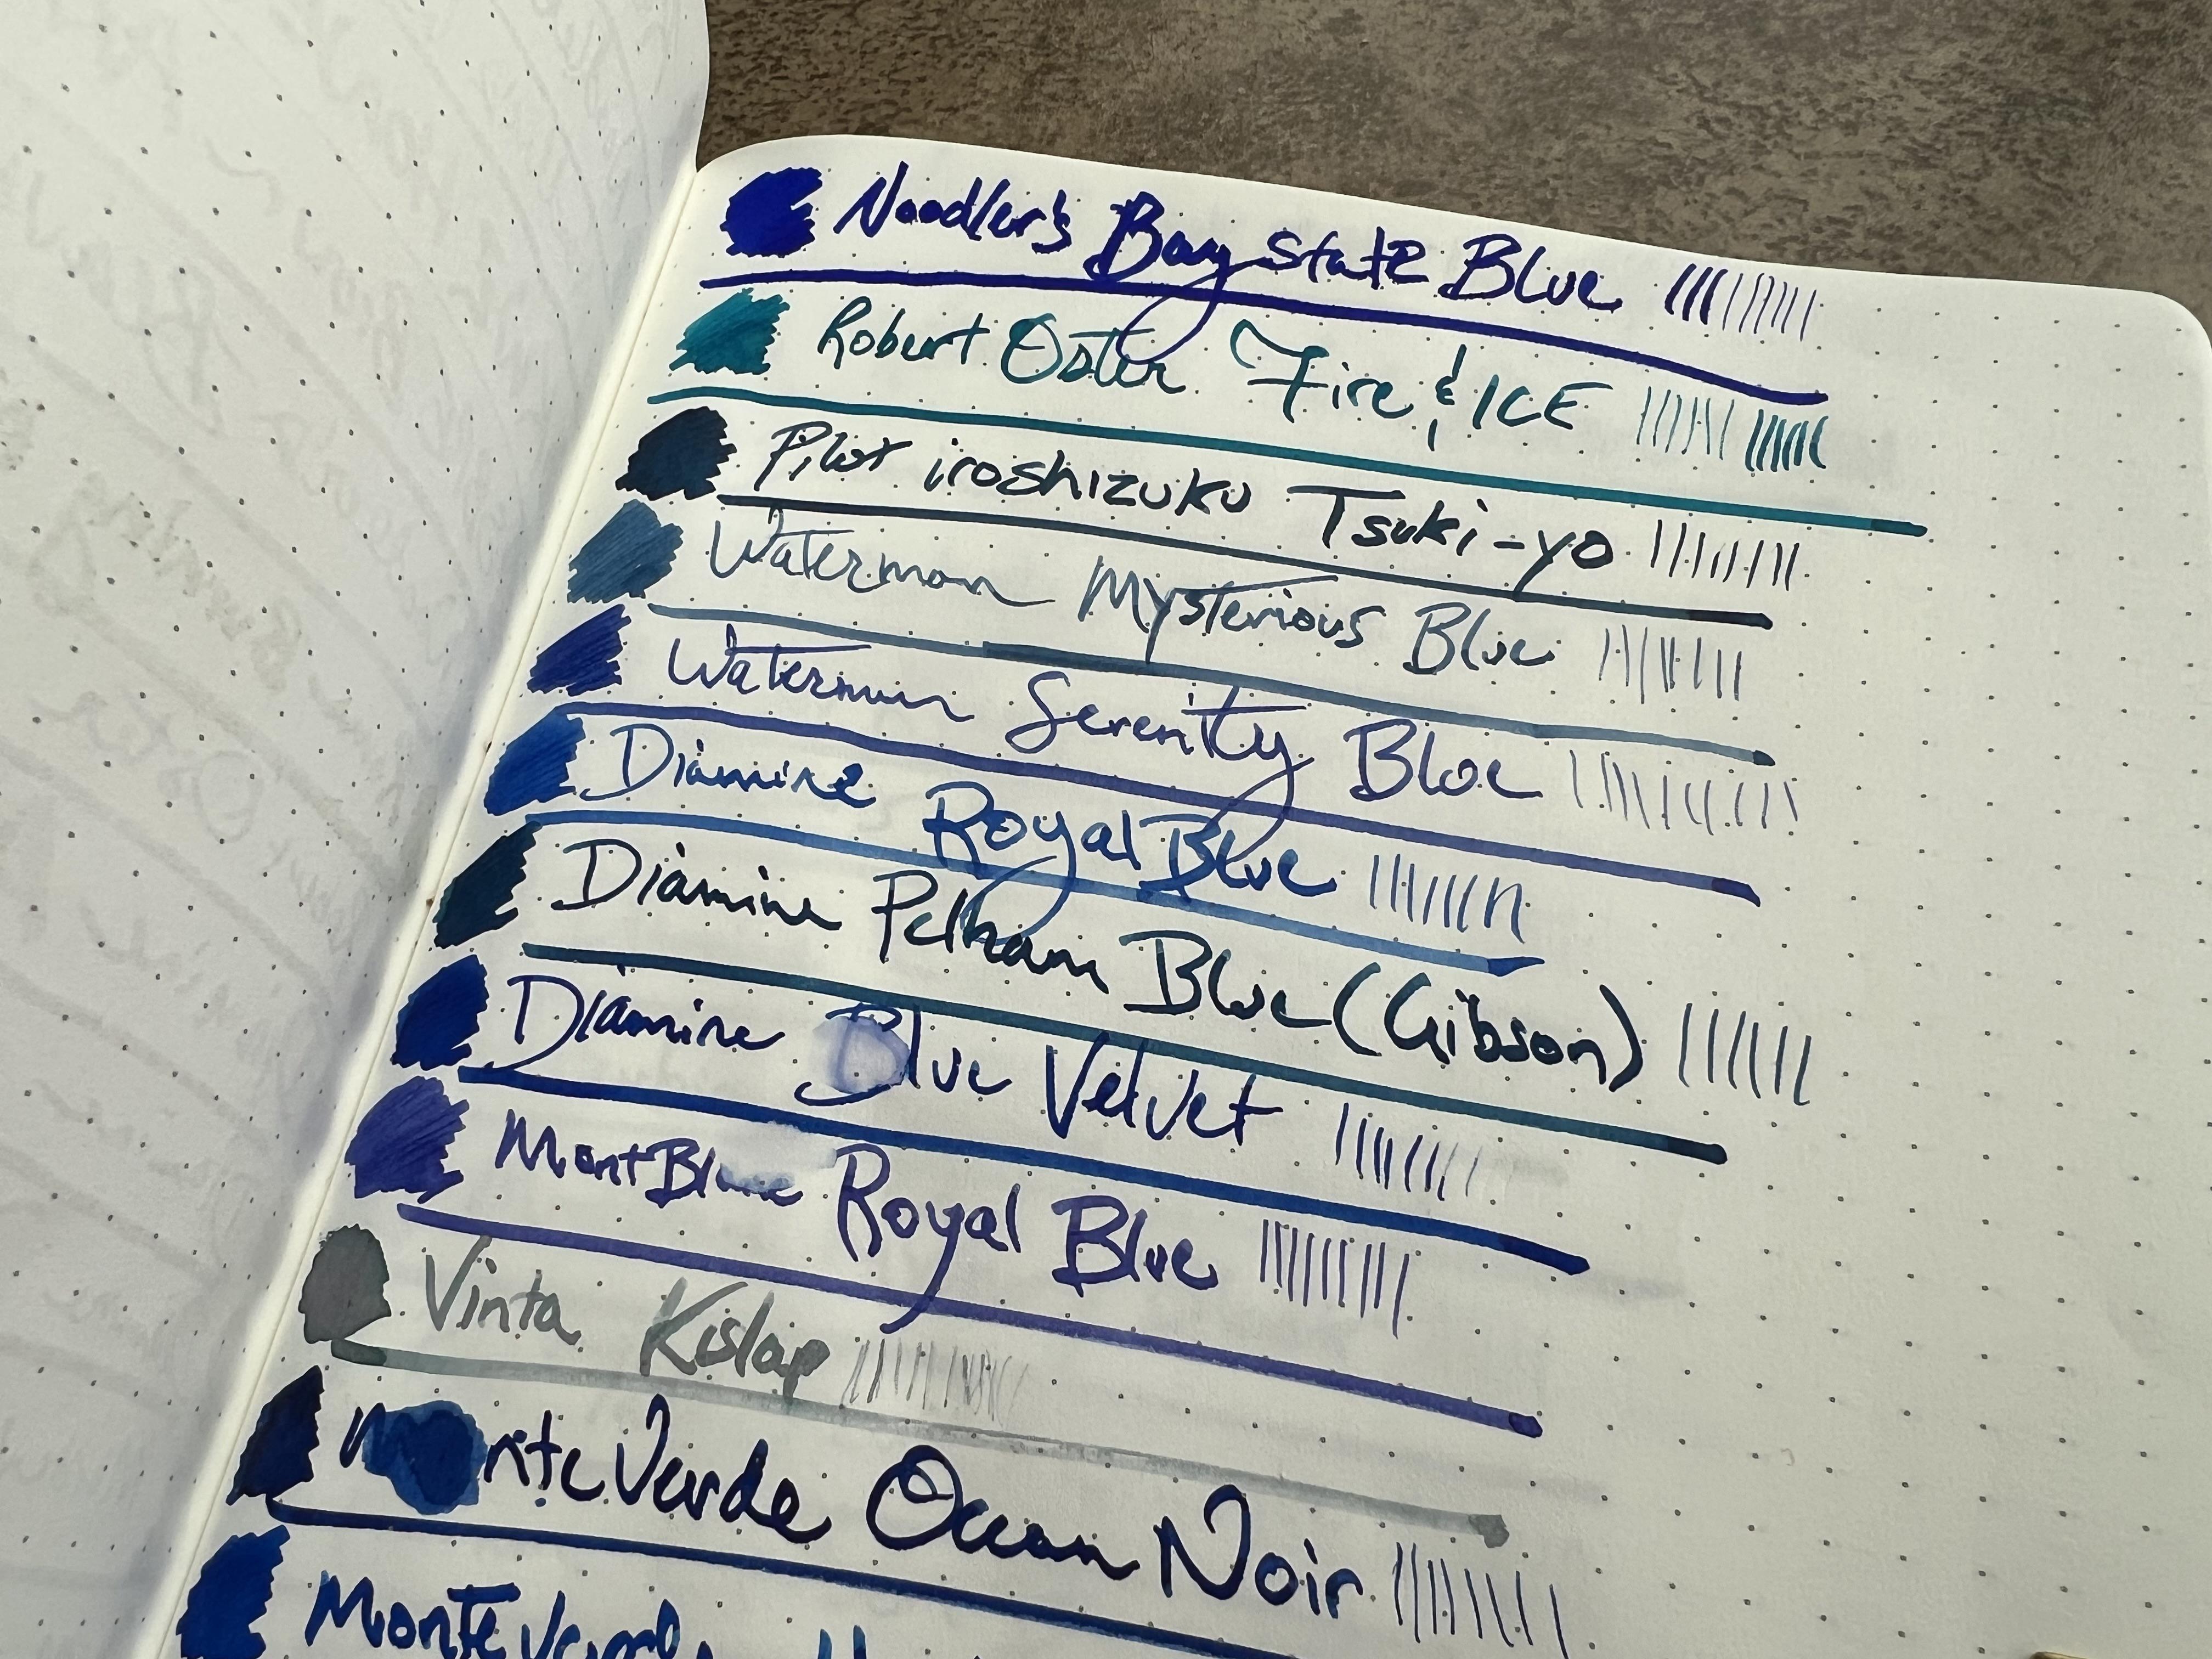 Noodler's Bay state Blue
Robert Oster Fire & ICE
Pilot iroshizuku Tsuki-yo
Waterman Mysterious Blue
Waterman Serenity Blue
Diamine Royal Blue
Diamine Pelham Blue (Gibson)
Diamine Blue Velvet
MontBlanc Royal Blue
Vinta Kislap
MonteVerde Ocean Noir
Monteverde